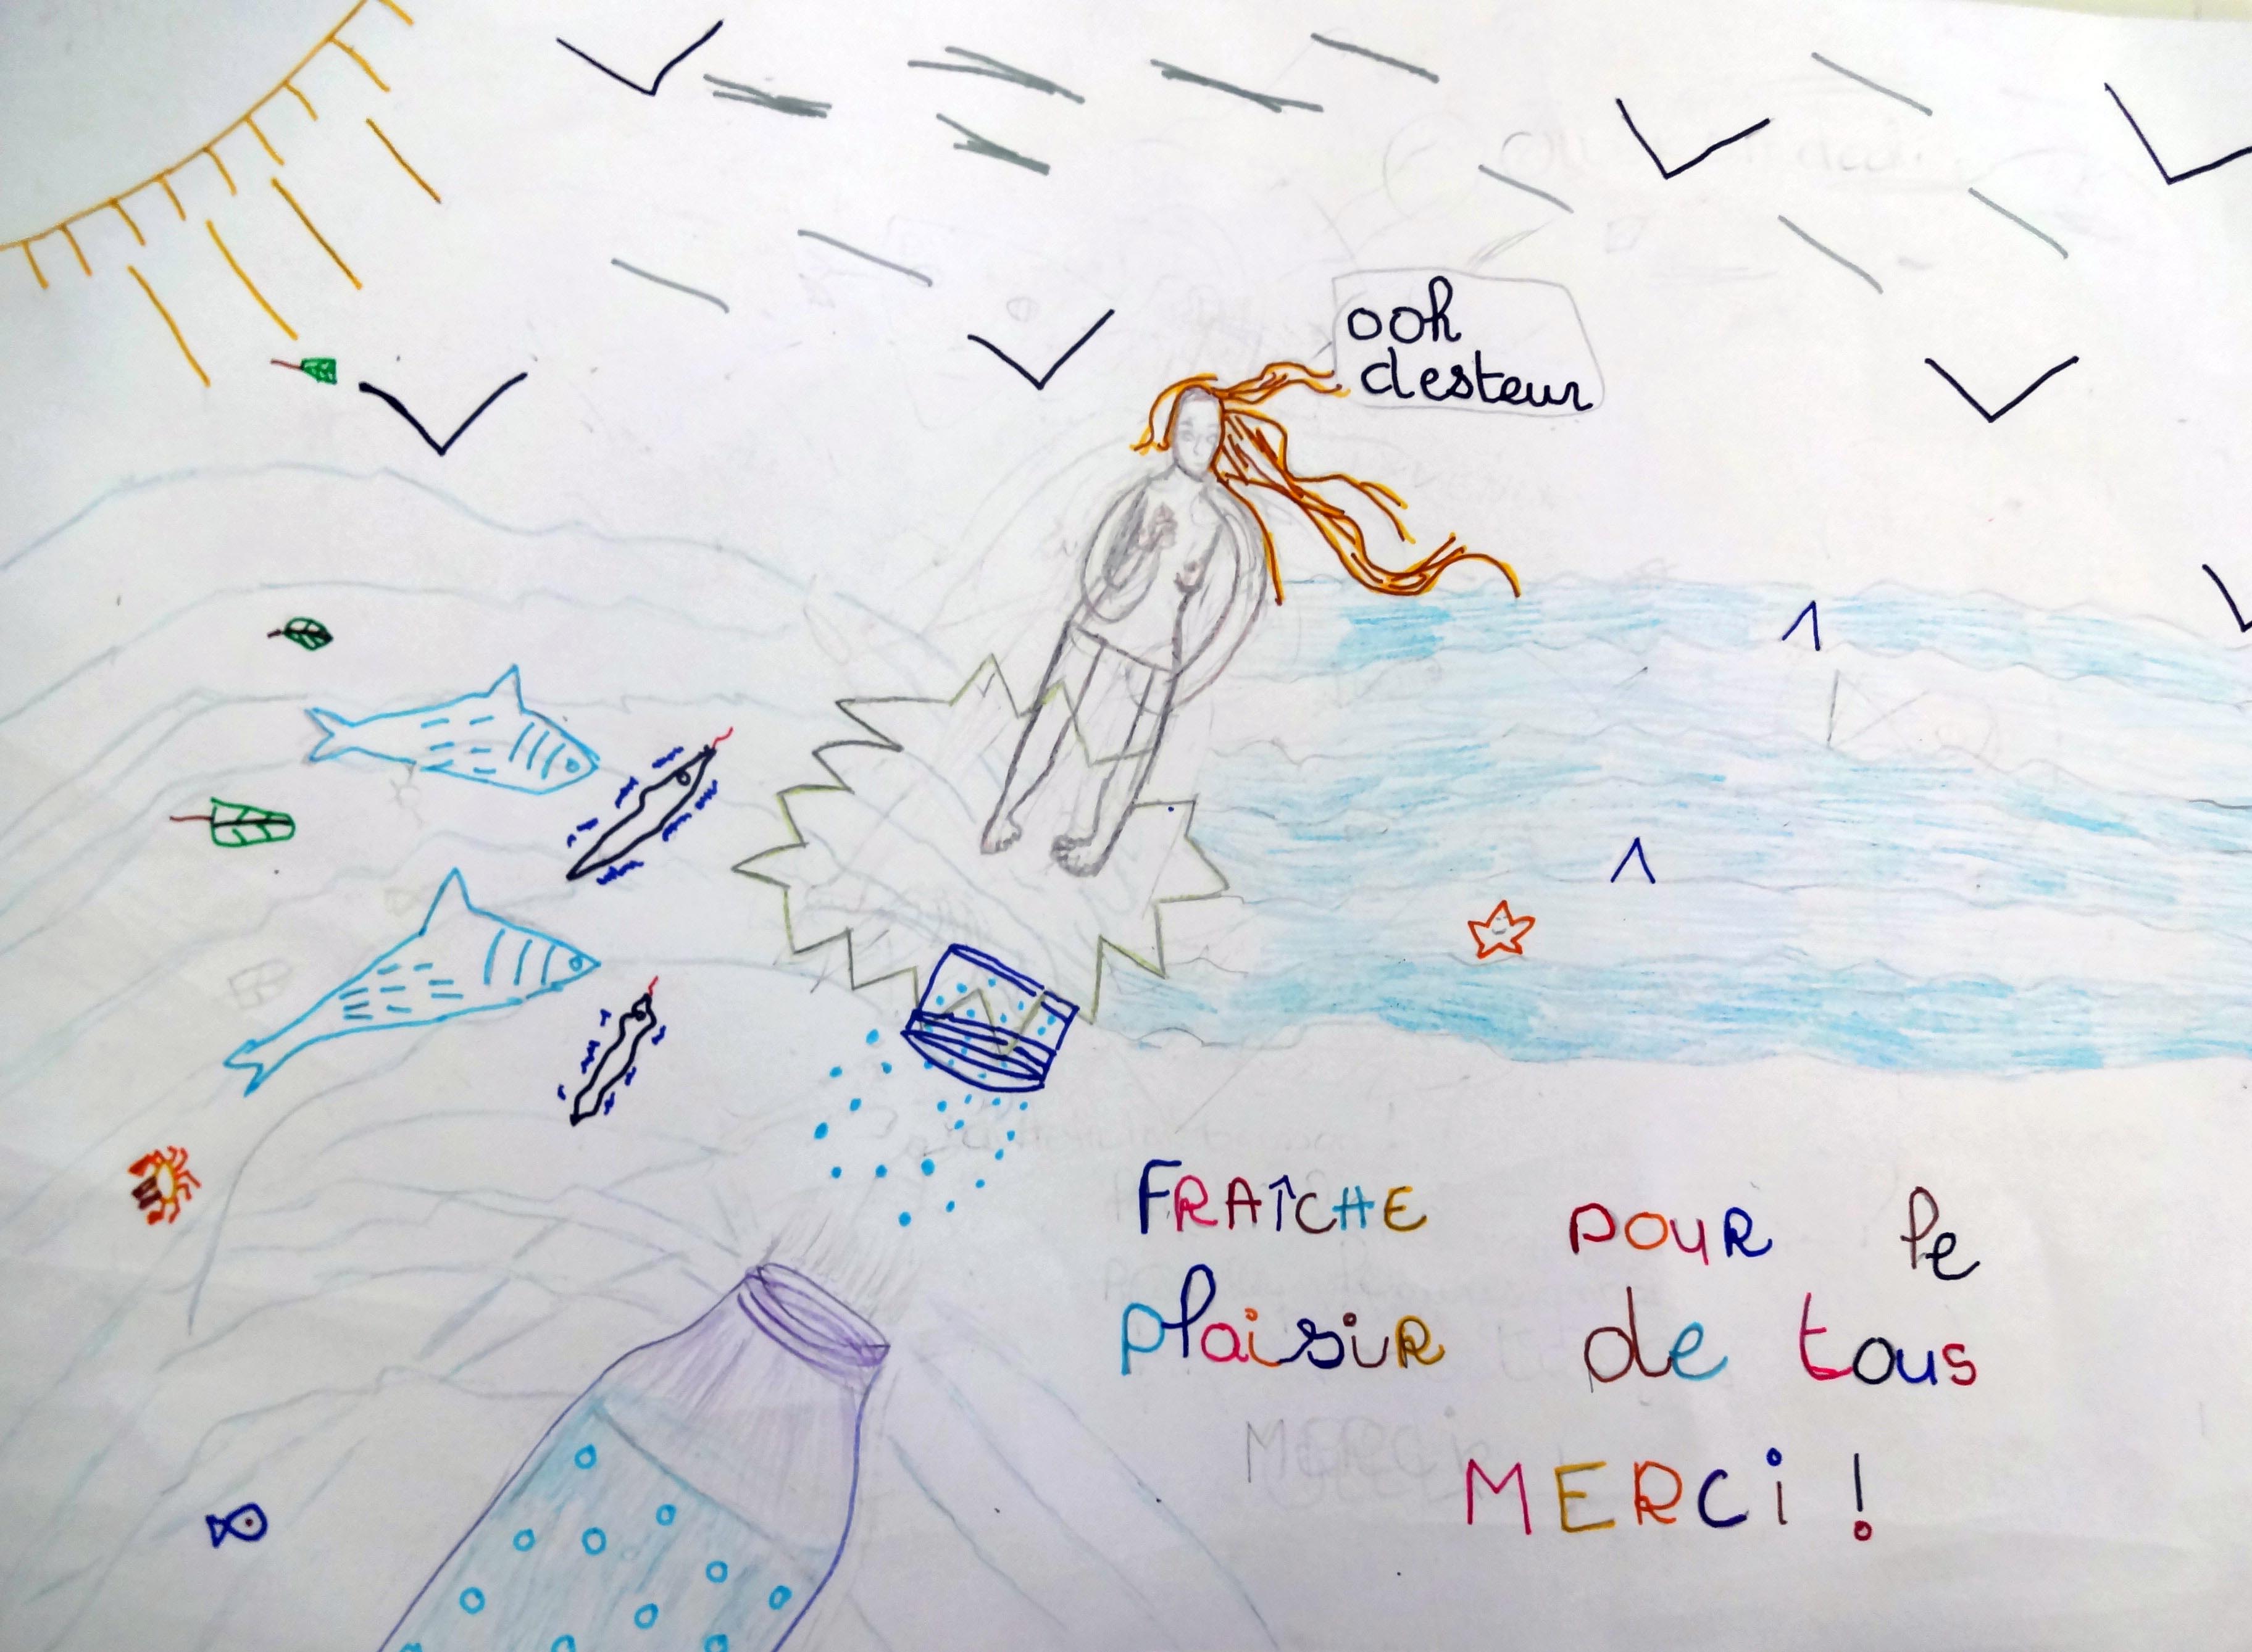 ooh
desteur
FRAÎCHE POUR le
plaisiR de tous
MERCi !